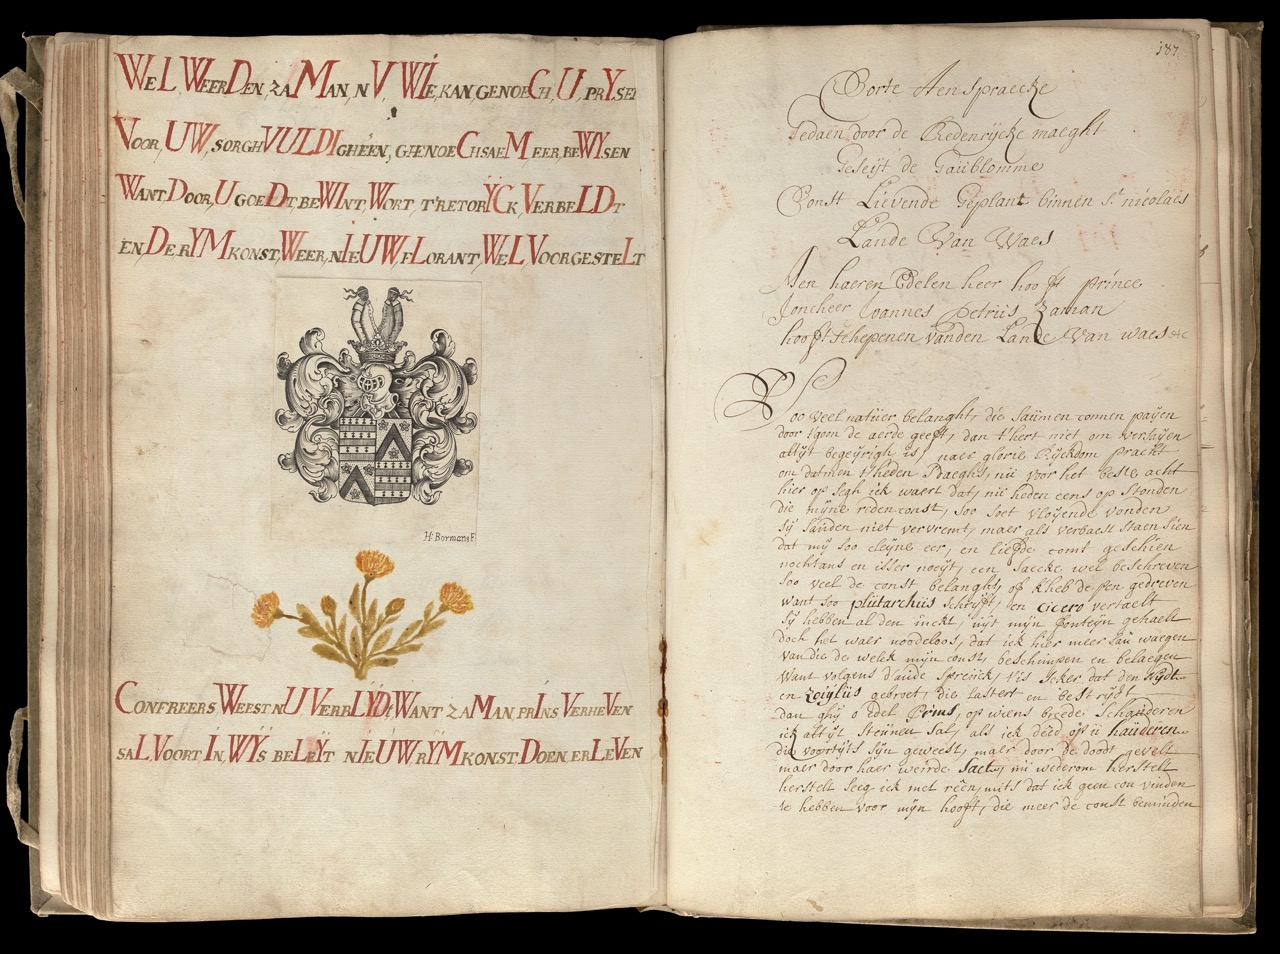 WeL WeerDen zaMan, nV, WIe, kan, genoeCh, U, prYsen
Voor, UW, sorghVULDIgheen, ghenoeChsaeM eer, beWYsen
Want Door, U goeDt, beWInt, Wort, t'retorYCk, VerbeLDt
en, De rYMkonst, Weer, nIeUW, fLorant, WeL Voorgestelt
H: Bormans F.
Confreers Weest nU VerbLYDt, Want zaMan, prIns VerheVen
saL, Voort In, WYs beLeYt nIeUW rYMkonst Doen, erLeVen
187
Corte Aenspraecke
Gedaen door de Redenrijcke maeght
Geseijt de Gaublomme
Const Lievende Geplant binnen St nicolaes
Lande Van Waes
Aen haeren Edelen heer hooft prince
Joncheer Joannes petrus Zaman
hooftschepenen vanden Lande Van waes &c
Soo veel natuer belanght, die saumen connen paijen
door tgom de aerde geeft, dan t'hert niet om versaijen
altijt begeyrigh is, naer glorie Rijckdom pracht
om datmen t'heden daeghs, nu voor het beste acht
hier op segh ick waert dat, nu heden eens op stonden
die mijne redenconst, soo soet vloijende vonden
sij sauden niet vervremt, maer als verbaest staen sien
dat mij soo cleijne eer, en liefde comt geschien
nochtans en isser noeijt, een saecke wel beschreven
soo veel de const belanght, of k'heb de pen gedreven
want soo plutarchus schrijft, en cicero vertaelt
sij hebben al den inckt, uijt mijn fonteijn gehaelt
doch het waer noodeloos, dat ick hier meer sau waegen
van die de welck mijn const, beschimpen en belaegen
want volgens d'aude spreuck, t'is seker dat den nijdt
en Zoijlus gebroet, die lastert en bestrijdt
dan ghij o edel Prins, op wiens breede schauderen
ick altijt steunen sal, als ick deed op u hauderen
die voortijts sijn geweest, maer door de doodt gevelt
maer door haer weirde Saet, nu wederom herstelt
herstelt seeg ick met reên, mits dat ick geen con vinden
te hebben voor mijn hooft, die meer de const beminden